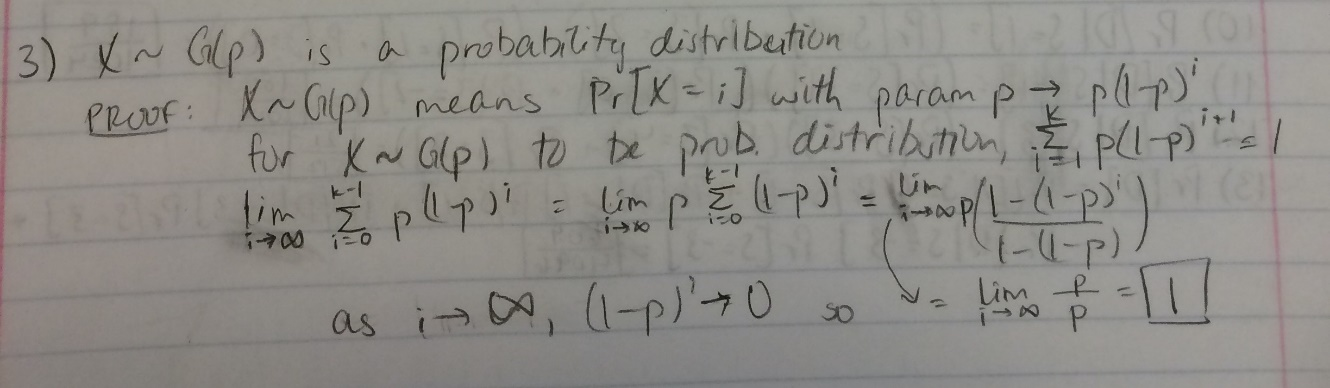 3) X ~ G(p) is a probability distribution
PROOF: X~G(p) means Pr[X = i] with param p → p(1-p)^i
for X ~ G(p) to be prob. distribution, ∑_{i=1}^{k} p(1-p)^{i+1} = 1
lim_{i→∞} ∑_{i=0}^{k-1} p(1-p)^i = lim_{i→∞} p ∑_{i=0}^{k-1} (1-p)^i = lim_{i→∞} p((1-(1-p)^i)/(1-(1-p)))
as i → ∞, (1-p)^i → 0 so = lim_{i→∞} p/p = 1